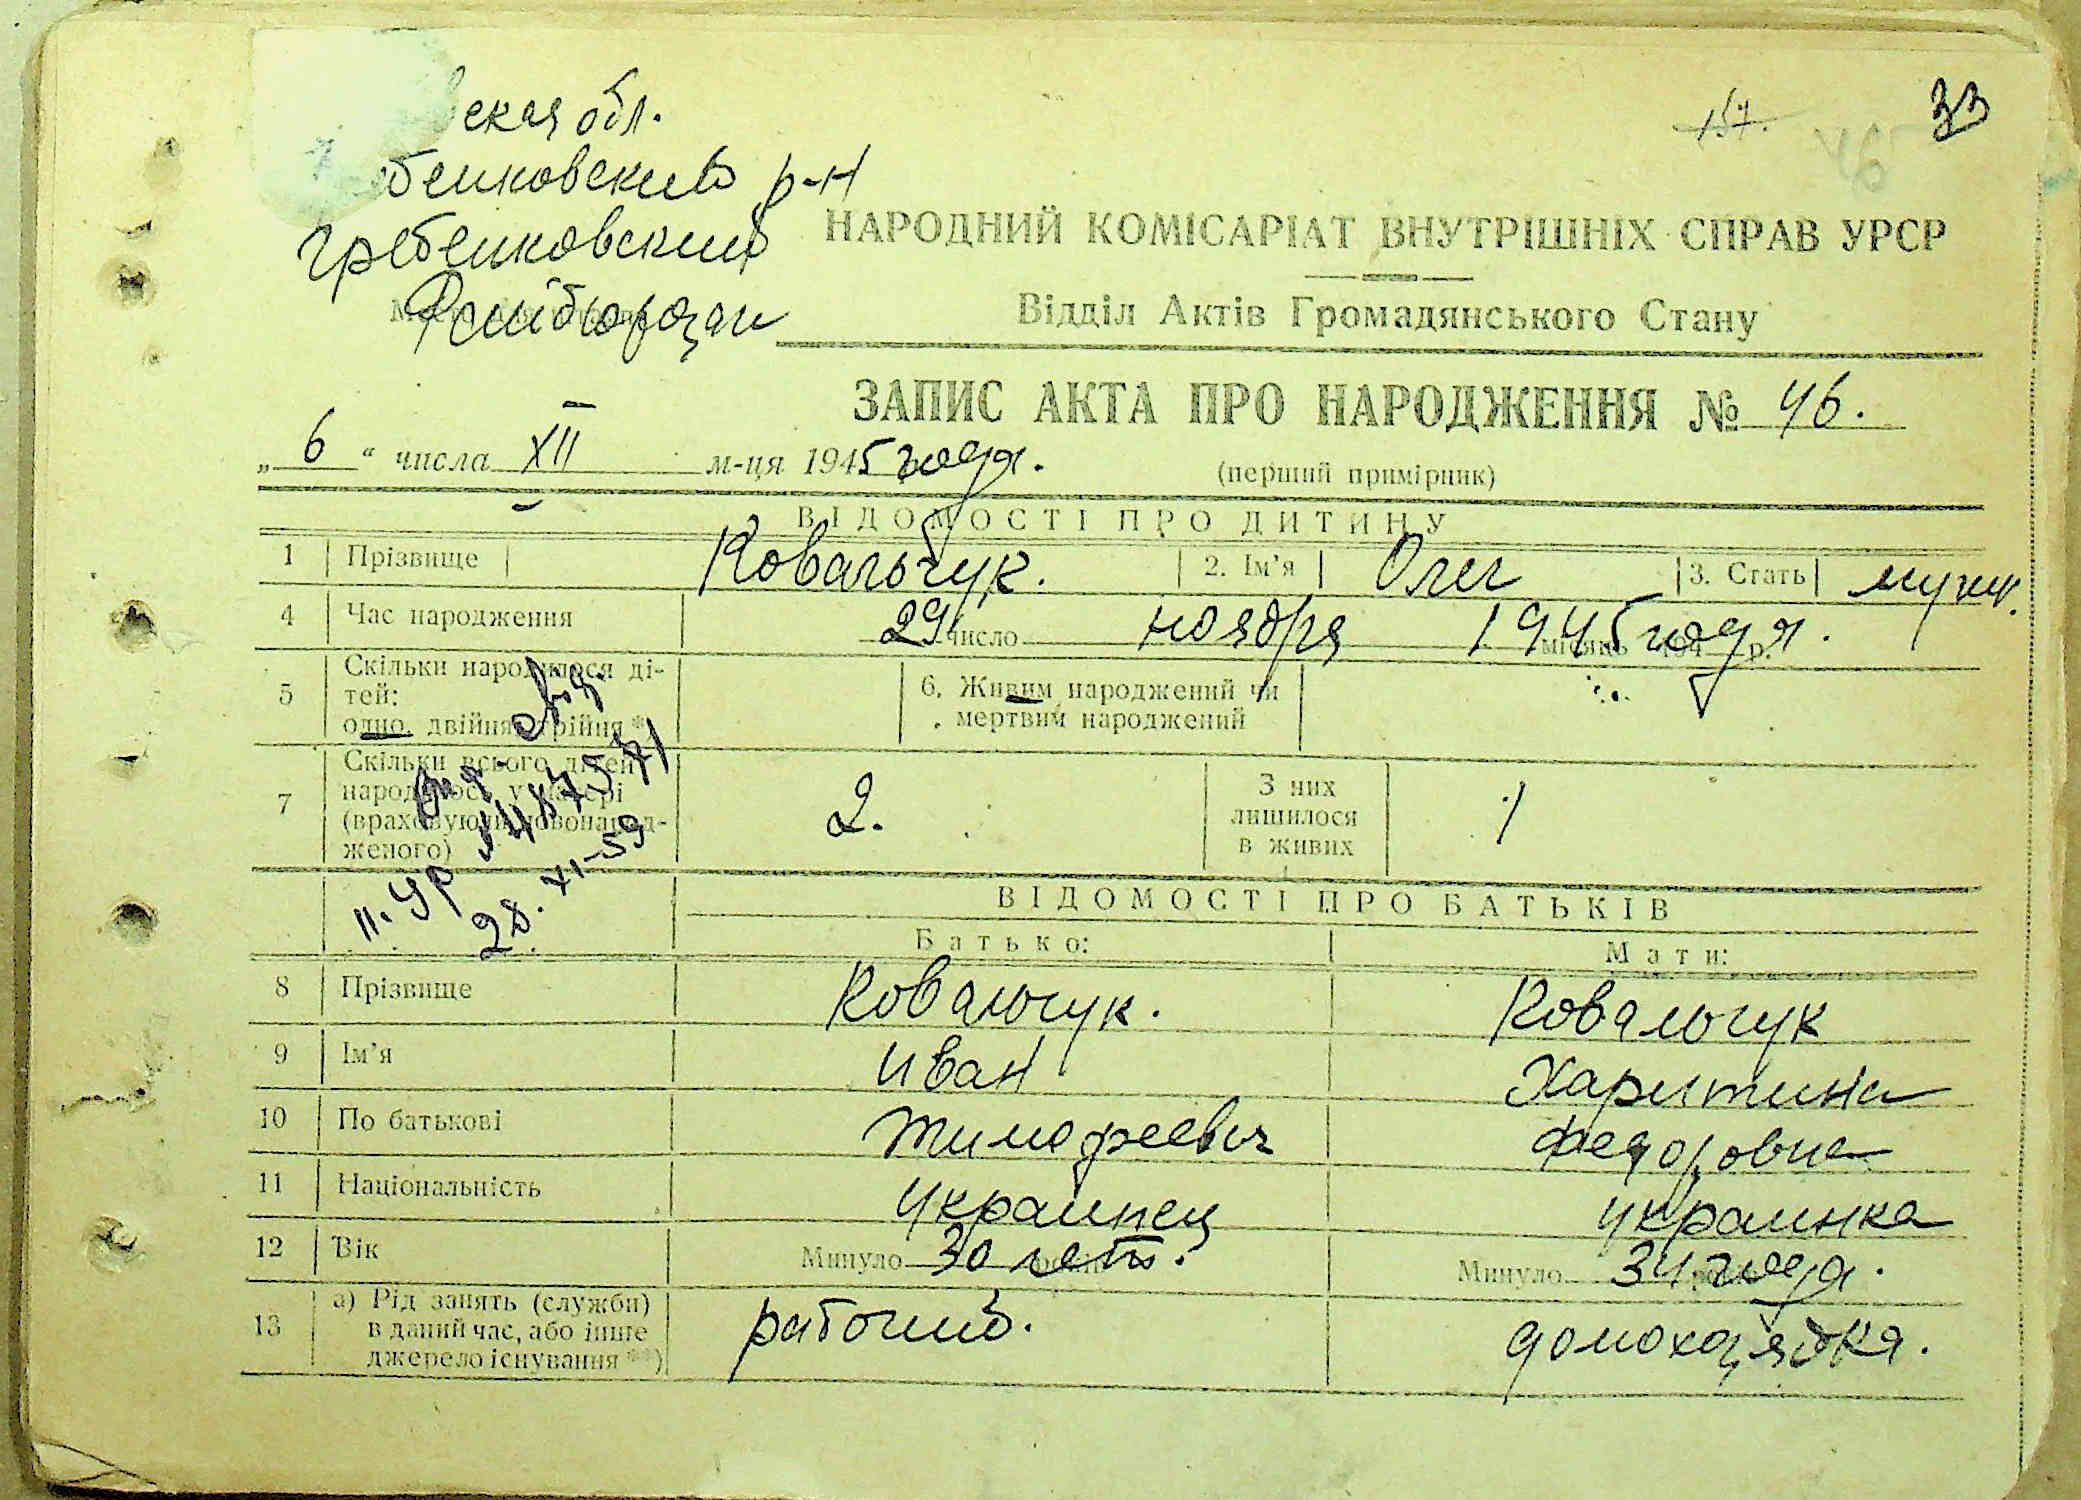 ская обл.
бенковский р-н
Гребенковский
157.
33
46
НАРОДНИЙ КОМІСАРІАТ ВНУТРІШНІХ СПРАВ УРСР
Відділ Актів Громадянського Стану
ЗАПИС АКТА ПРО НАРОДЖЕННЯ № 46.
„ 6 “ числа XII м-ця 1945 года.
(перший примірник)
ВІДОМОСТІ ПРО ДИТИНУ
1 Прізвище Ковальчук. 2. Ім'я Олег 3. Стать мужч.
4 Час народження 29 число ноября 1945 года. місяць 194 р.
5 Скільки народилося ді-
тей:
одно, двійня, трійня *
6. Живим народжений чи
мертвим народжений
7 Скільки всього дітей
народилось у матері
(враховуючи новонарод-
женого)
2.
З них
лишилося
в живих
1
28. XI-59
ВІДОМОСТІ ПРО БАТЬКІВ
Батько: Мати:
8 Прізвище Ковальчук. Ковальчук
9 Ім'я Иван Харитина
10 По батькові Тимофеевич Федоровна
11 Національність украинец украинка
12 Вік Минуло 30 лет. Минуло 34 года.
13 а) Рід занять (служби)
в даний час, або інше
джерело існування **)
рабочий. домохозяйка.